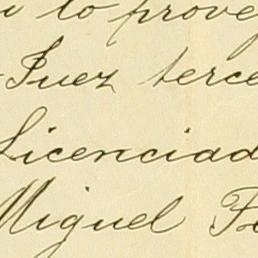 lo prove
Juez terce
Licenciad
Miguel Fe